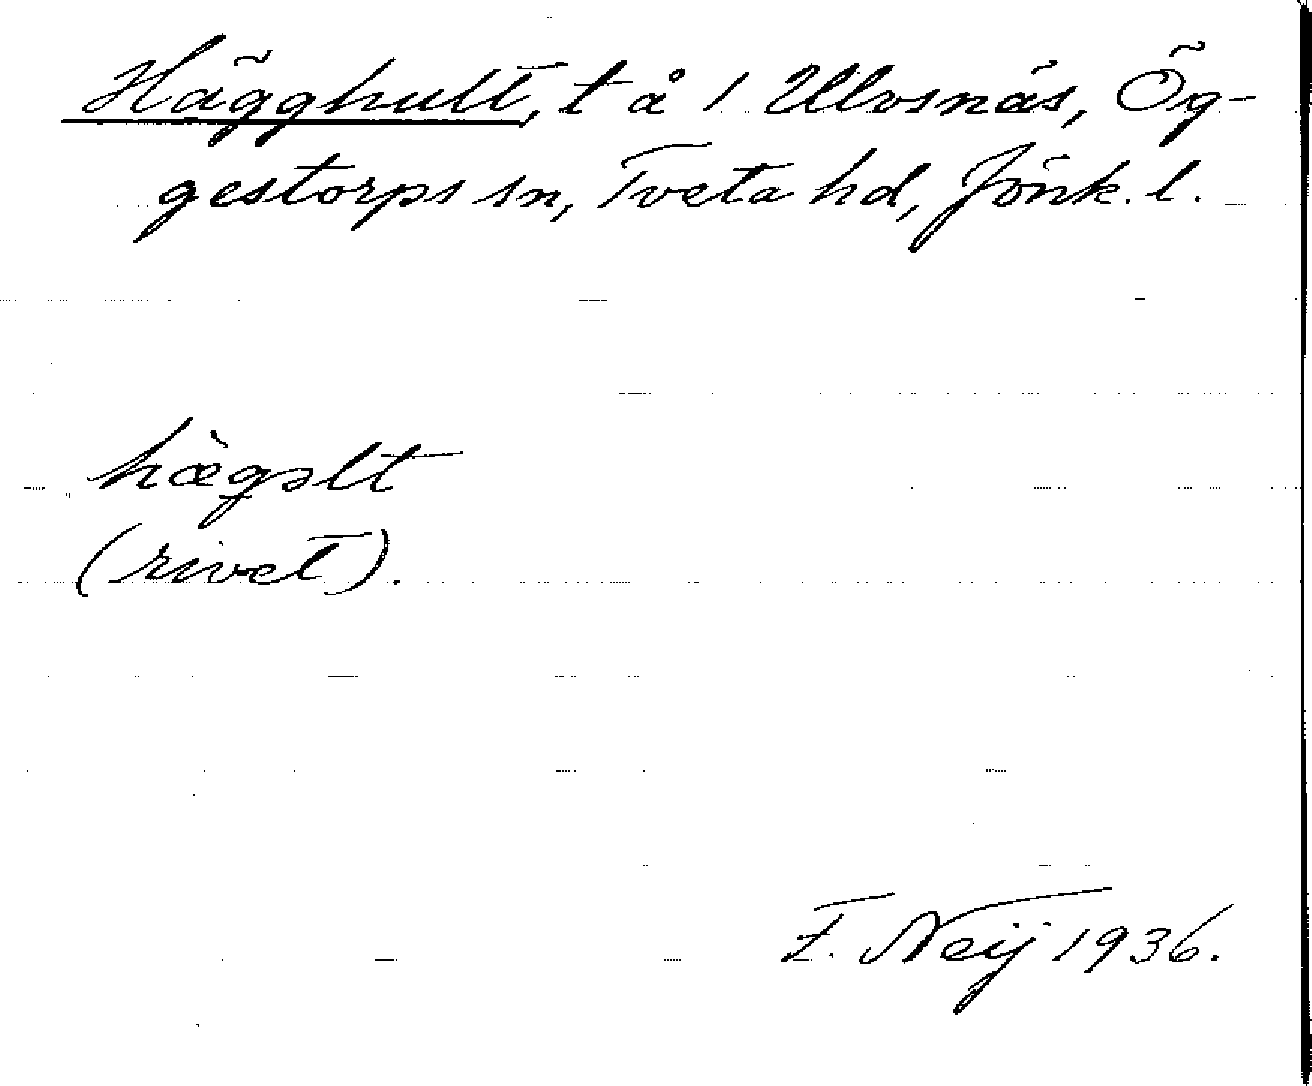 Hägghult, t å 1 Ulvsnäs, Ög-
gestorps sn, Tveta hd, Jönk. l.
hæ̀gəlt
(rivet).
F. Neij 1936.